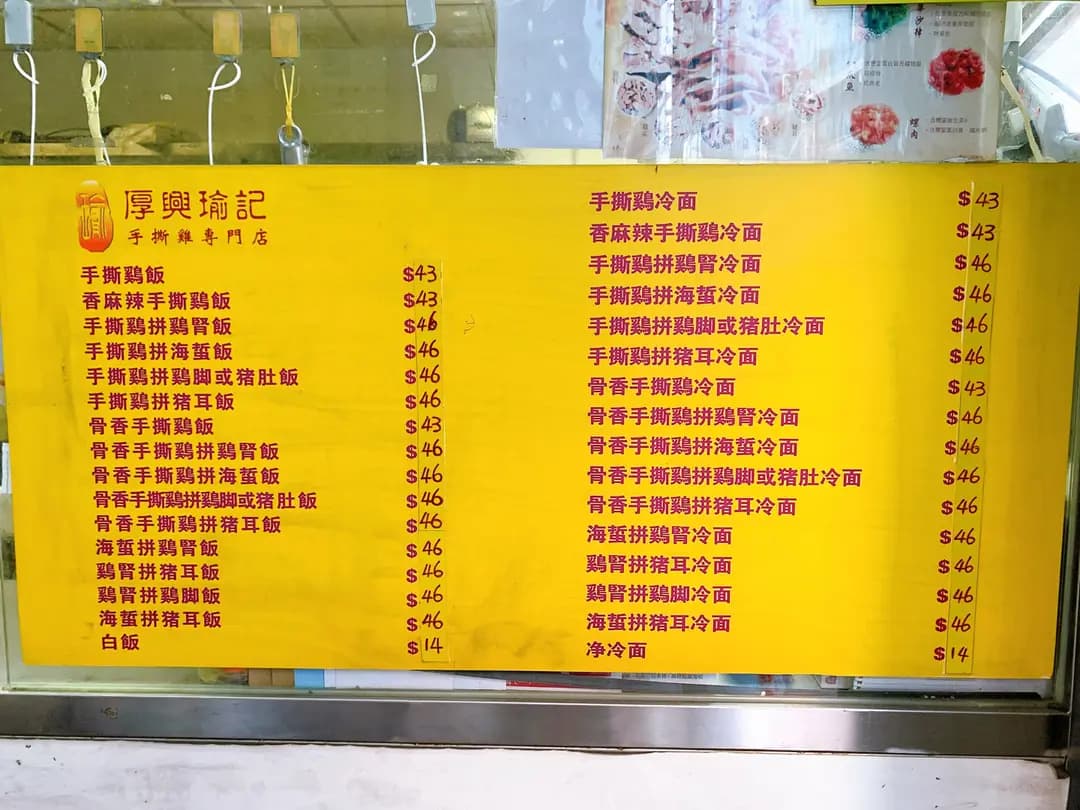 厚興瑜記
手撕雞專門店
手撕鷄飯 $43
香麻辣手撕鷄飯 $43
手撕鷄拼鷄腎飯 $46
手撕鷄拼海蜇飯 $46
手撕鷄拼鷄脚或猪肚飯 $46
手撕鷄拼猪耳飯 $46
骨香手撕鷄飯 $43
骨香手撕鷄拼鷄腎飯 $46
骨香手撕鷄拼海蜇飯 $46
骨香手撕鷄拼鷄脚或猪肚飯 $46
骨香手撕鷄拼猪耳飯 $46
海蜇拼鷄腎飯 $46
鷄腎拼猪耳飯 $46
鷄腎拼鷄脚飯 $46
海蜇拼猪耳飯 $46
白飯 $14
手撕鷄冷面 $43
香麻辣手撕鷄冷面 $43
手撕鷄拼鷄腎冷面 $46
手撕鷄拼海蜇冷面 $46
手撕鷄拼鷄脚或猪肚冷面 $46
手撕鷄拼猪耳冷面 $46
骨香手撕鷄冷面 $43
骨香手撕鷄拼鷄腎冷面 $46
骨香手撕鷄拼海蜇冷面 $46
骨香手撕鷄拼鷄脚或猪肚冷面 $46
骨香手撕鷄拼猪耳冷面 $46
海蜇拼鷄腎冷面 $46
鷄腎拼猪耳冷面 $46
鷄腎拼鷄脚冷面 $46
海蜇拼猪耳冷面 $46
净冷面 $14
螺肉